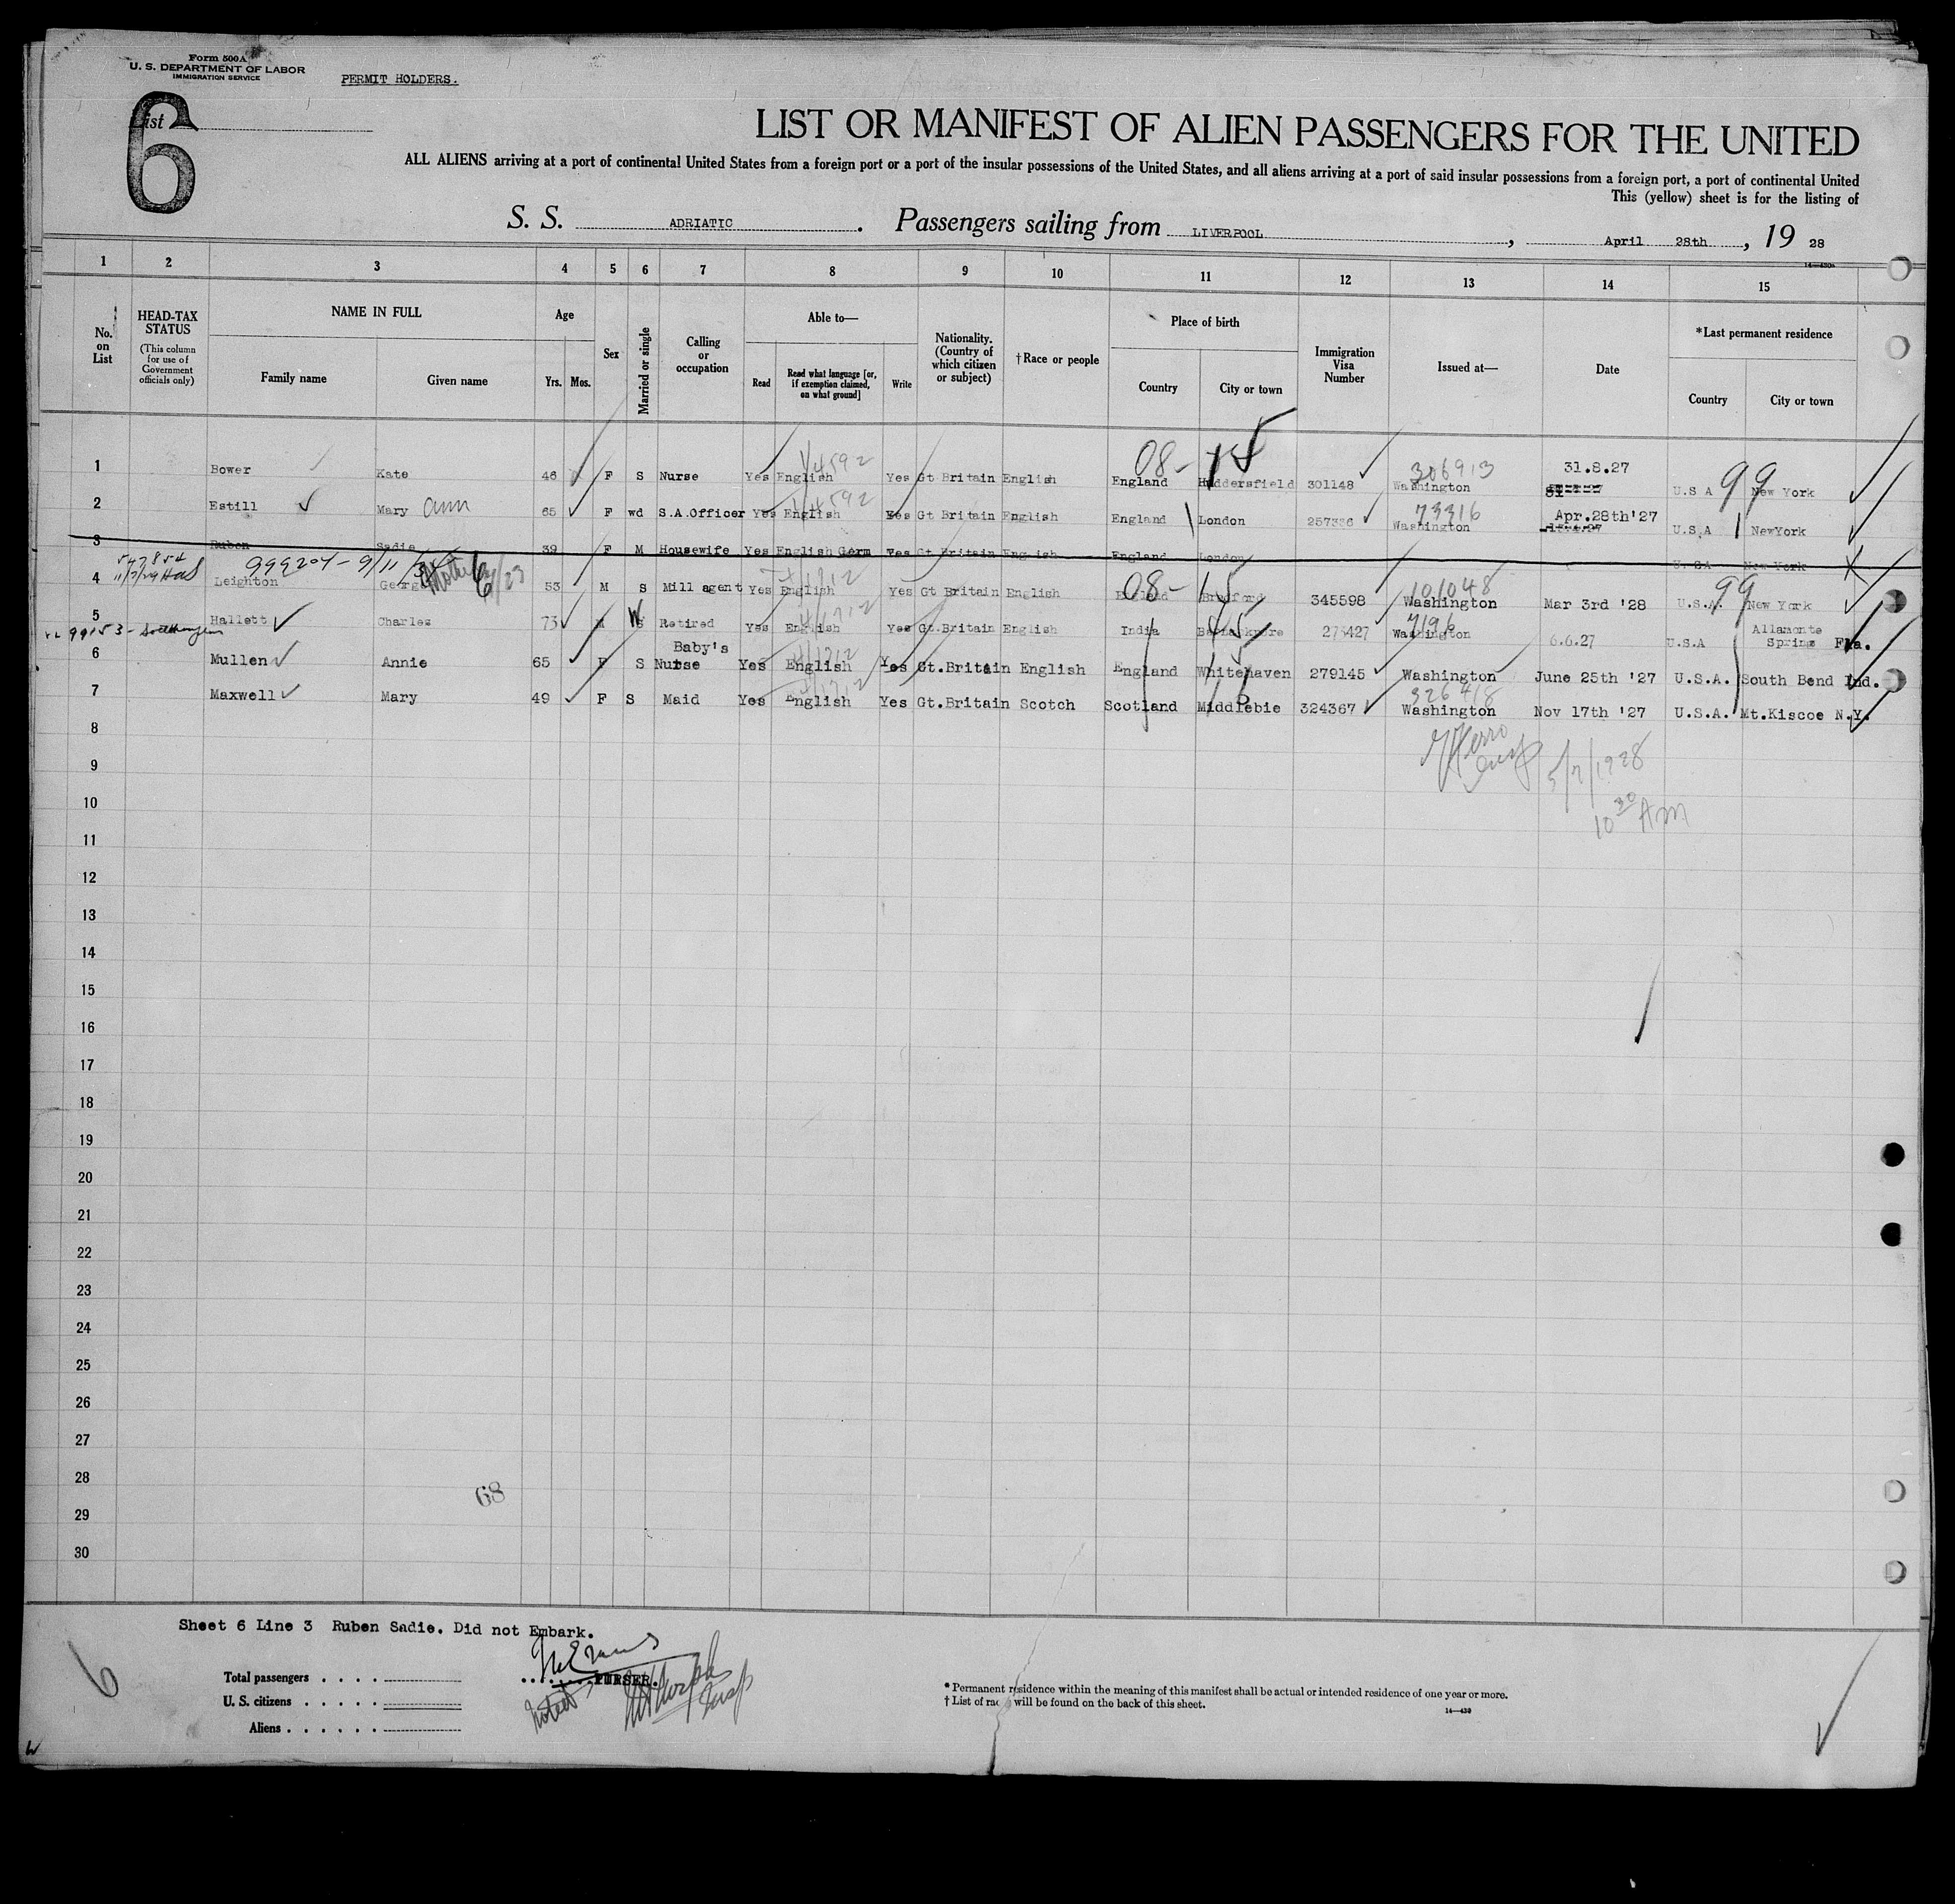 Form 500A
U. S. DEPARTMENT OF LABOR
IMMIGRATION SERVICE
PERMIT HOLDERS.
List
6
LIST OR MANIFEST OF ALIEN PASSENGERS FOR THE UNITED
ALL ALIENS arriving at a port of continental United States from a foreign port or a port of the insular possessions of the United States, and all aliens arriving at a port of said insular possessions from a foreign port, a port of continental United
This (yellow) sheet is for the listing of
S. S. ADRIATIC. Passengers sailing from LIVERPOOL, April 28th, 19 28
14—430a
1 2 3 4 5 6 7 8 9 10 11 12 13 14 15
No. on List
HEAD-TAX STATUS
(This column for use of Government officials only)
NAME IN FULL
Family name Given name
Age
Yrs. Mos.
Sex
Married or single
Calling or occupation
Able to—
Read Read what language [or, if exemption claimed, on what ground] Write
Nationality. (Country of which citizen or subject)
†Race or people
Place of birth
Country City or town
Immigration Visa Number
Issued at—
Date
*Last permanent residence
Country City or town
1 Bower Kate 46 F S Nurse Yes English 14592 Yes Gt Britain English 08- England Huddersfield 301148 306913 Washington 31.8.27 U.S A 99 New York
2 Estill Mary Ann 65 F wd S.A.Officer Yes English 14592 Yes Gt Britain English England London 257336 73316 Washington Apr.28th'27 U.S.A NewYork
3 Ruben Sadie 39 F M Housewife Yes English Germ Yes Gt Britain English England London U.S A New York
547854
999204 - 9/11/
4 Leighton George 53 M S Mill agent Yes English 41912 Yes Gt Britain English 08- England Bradford 345598 101048 Washington Mar 3rd '28 U.S.A. 99 New York
5 Hallett Charles 73 M S Retired Yes English Yes Gt.Britain English India 7196 Washington 6.6.27 U.S.A Allamonte Spring Fla.
99153 -
6 Mullen Annie 65 F S Baby's Nurse Yes English Yes Gt.Britain English England Whitehaven 279145 Washington June 25th '27 U.S.A. South Bend Ind.
7 Maxwell Mary 49 F S Maid Yes English Yes Gt.Britain Scotch Scotland Middlebie 324367 326418 Washington Nov 17th '27 U.S.A. Mt.Kiscoe N.Y.
8
9
5/7/1928
10
10 30 AM
11
12
13
14
15
16
17
18
19
20
21
22
23
24
25
26
27
28
68
29
30
Sheet 6 Line 3 Ruben Sadie. Did not Embark.
6
Total passengers . . . .
PURSER.
U. S. citizens . . . . .
Noted
Insp
Aliens . . . . . .
* Permanent residence within the meaning of this manifest shall be actual or intended residence of one year or more.
† List of races will be found on the back of this sheet.
14—430